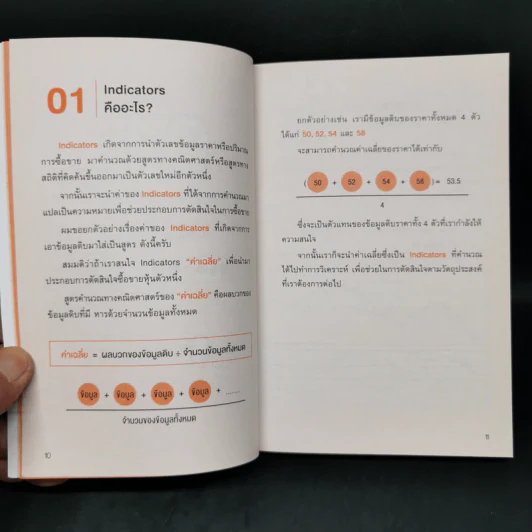 01
Indicators
คืออะไร?
Indicators เกิดจากการนำตัวเลขข้อมูลราคาหรือปริมาณ
การซื้อขาย มาคำนวณด้วยสูตรทางคณิตศาสตร์หรือสูตรทาง
สถิติที่คิดค้นขึ้นออกมาเป็นตัวเลขใหม่อีกตัวหนึ่ง
จากนั้นเราจะนำค่าของ Indicators ที่ได้จากการคำนวณมา
แปลเป็นความหมายเพื่อช่วยประกอบการตัดสินใจในการซื้อขาย
ผมขอยกตัวอย่างเรื่องค่าของ Indicators ที่เกิดจากการ
เอาข้อมูลดิบมาใส่เป็นสูตร ดังนี้ครับ
สมมติว่าถ้าเราสนใจ Indicators "ค่าเฉลี่ย" เพื่อนำมา
ประกอบการตัดสินใจซื้อขายหุ้นตัวหนึ่ง
สูตรคำนวณทางคณิตศาสตร์ของ "ค่าเฉลี่ย" คือผลบวกของ
ข้อมูลดิบที่มี หารด้วยจำนวนข้อมูลทั้งหมด
ค่าเฉลี่ย = ผลบวกของข้อมูลดิบ ÷ จำนวนข้อมูลทั้งหมด
ข้อมูล + ข้อมูล + ข้อมูล + ข้อมูล + ......
จำนวนของข้อมูลทั้งหมด
10
ยกตัวอย่างเช่น เรามีข้อมูลดิบของราคาทั้งหมด 4 ตัว
ได้แก่ 50, 52, 54 และ 58
จะสามารถคำนวณค่าเฉลี่ยของราคาได้เท่ากับ
( 50 + 52 + 54 + 58 ) = 53.5
4
ซึ่งจะเป็นตัวแทนของข้อมูลดิบราคาทั้ง 4 ตัวที่เรากำลังให้
ความสนใจ
จากนั้นเราก็จะนำค่าเฉลี่ยซึ่งเป็น Indicators ที่คำนวณ
ได้ไปทำการวิเคราะห์ เพื่อช่วยในการตัดสินใจตามวัตถุประสงค์
ที่เราต้องการต่อไป
11